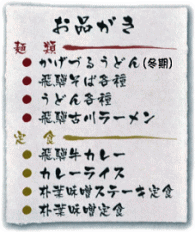 お品がき
麺類
かけづるうどん(冬期)
飛騨そば各種
うどん各種
飛騨古川ラーメン
定食
飛騨牛カレー
カレーライス
朴葉味噌ステーキ定食
朴葉味噌定食